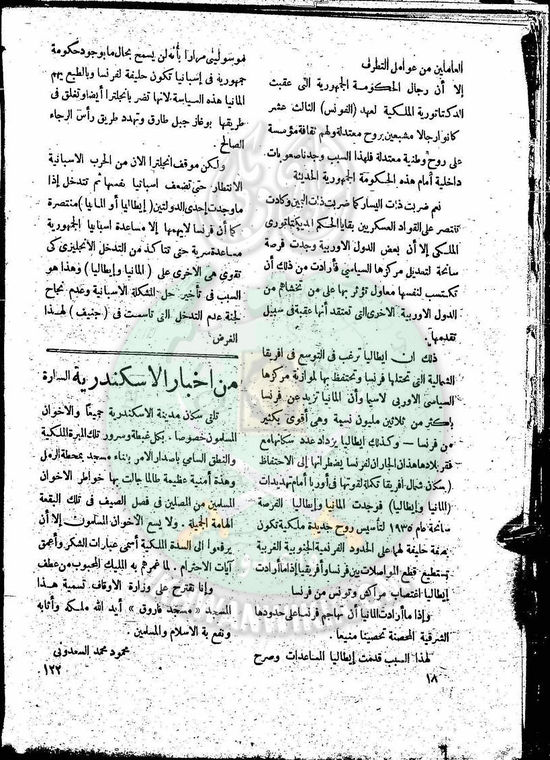 العاملين من عوامل التطرف
إلا أن رجال الحكومة الجمهورية التى عقبت
الدكتاتورية الملكية لعهد (الفونس) الثالث عشر
كانوا رجالا مشبعين بروح معتدلة ولهم ثقافة مؤسسة
على روح وطنية معتدلة فلهذا السبب وجدنا صعوبات
داخلية أمام هذه الحكومة الجمهورية الحديثة
نعم ضربت ذات اليسار كما ضربت ذات اليمين وكادت
تنتصر على القواد العسكريين بقايا الحكم الديكتاتورى
الملكى إلا أن بعض الدول الاوربية وجدت فرصة
سانحة لتعديل مركزها السياسى فأرادت من ذلك أن
تكتسب لنفسها معاول تؤثر بها على من تخشاهم من
الدول الاوربية الاخرى التى تعتقد أنها عقبة فى سبيل
تقدمها.
ذلك ان إيطاليا ترغب فى التوسع فى افريقا
الشمالية التى تحتلها فرنسا وتحتفظ بها لموازنة مركزها
السياسى الاوربى لاسيما وأن المانيا تزيد عن فرنسا
بأكثر من ثلاثين مليون نسمة وهى أقوى بكثير
من فرنسا — وكذلك إيطاليا يزداد عدد سكانها مع
فقر بلادها فهذان الجاران لفرنسا يضطرانها إلى الاحتفاظ
بسكان شمال افريقا تكملة لقوتها فى أوربا أمام تهديدات
(المانيا وإيطاليا) فوجدت المانيا وإيطاليا الفرصة
سانحة عام ١٩٣٥ لتأسيس روح جديدة ملكية تكون
بصفة حليفة لها على الحدود الفرنسية الجنوبية الغربية
تستطيع قطع المواصلات بين فرنسا وأفريقيا إذا ما أرادت
إيطاليا اغتصاب مراكش وتونس من فرنسا
وإذا ما أرادت المانيا أن تهاجم فرنسا على حدودها
الشرقية المحصنة تحصينا منيعا
لهذا السبب قدمت إيطاليا المساعدات وصرح
١٨
موسولينى مرارا بأنه لن يسمح بحال ما بوجود حكومة
جمهورية فى إسبانيا تكون حليفة لفرنسا وبالطبع يهم
المانيا هذه السياسة لانها تضر بانجلترا أيضا وتغلق فى
طريقها بوغاز جبل طارق وتهدد طريق رأس الرجاء
الصالح.
ولكن موقف انجلترا الان من الحرب الاسبانية
الانتظار حتى تضعف اسبانيا نفسها ثم تتدخل إذا
ما وجدت إحدى الدولتين (إيطاليا أو المانيا) منتصرة
كما أن فرنسا لايهمها إلا مساعدة اسبانيا الجمهورية
مساعدة سرية حتى تتأكد من التدخل الانجليزى كى
تقوى هى الاخرى على (المانيا وإيطاليا) وهذا هو
السبب فى تأخير حل المشكلة الاسبانية وعدم نجاح
لجنة عدم التدخل التى تأسست فى (جنيف) لهذا
الغرض
من أخبار الاسكندرية السارة
تلقى سكان مدينة الاسكندرية جميعًا والاخوان
المسلمون خصوصا. بكل غبطة وسرور تلك المبرة الملكية
والنطق السامى باصدار الامر ببناء مسجد بمحطة الرمل
وهذه أمنية عظيمة طالما جالت بها خواطر الاخوان
المسلمين من المصلين فى فصل الصيف فى تلك البقعة
الهامة الجميلة. ولا يسع الاخوان المسلمون إلا أن
يرفعوا الى السدة الملكية أسمى عبارات الشكر وأعمق
آيات الاحترام. لما غمرهم به المليك المحبوب من عطف
وإنا نقترح على وزارة الاوقاف تسمية هذا
المسجد « مسجد فاروق » أيد الله ملكه وأثابه
ونفع به الاسلام والمسلمين
محمود محمد السعدونى
١٢٢.